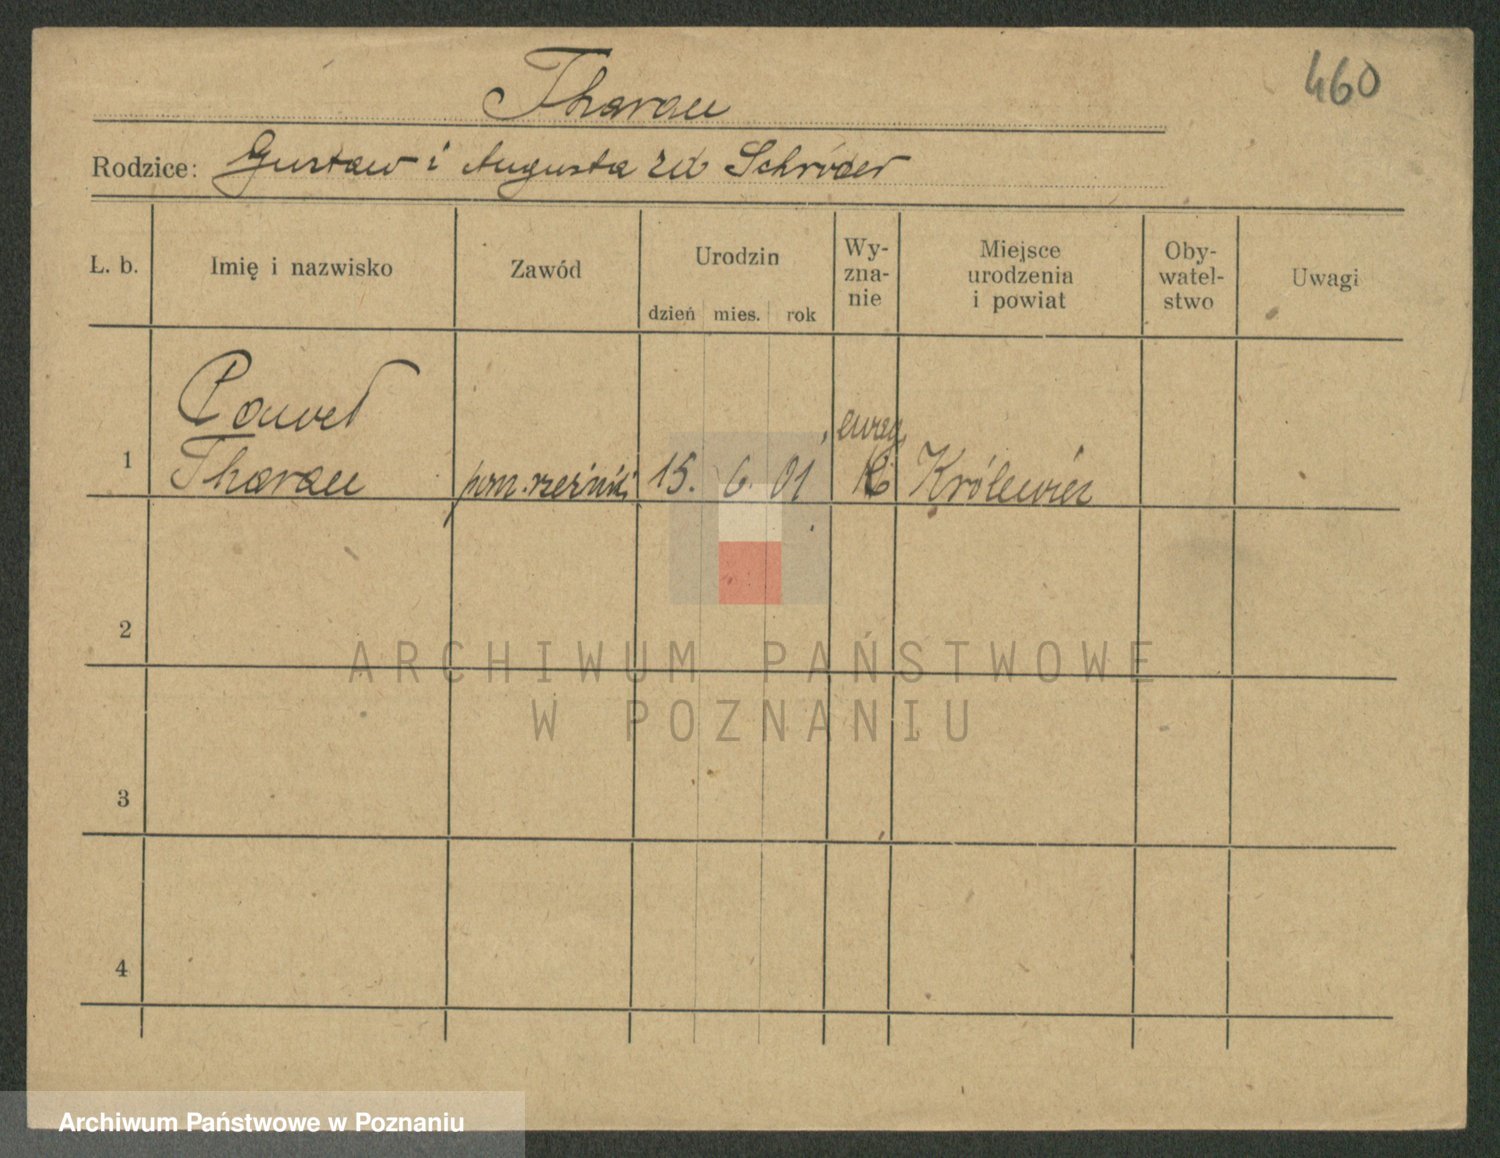 460
Tharau
Rodzice: Gustaw i Augusta zd Schröder
L. b.
Imię i nazwisko
Zawód
Urodzin
dzień mies. rok
Wy-
zna-
nie
Miejsce
urodzenia
i powiat
Oby-
watel-
stwo
Uwagi
Paweł
ewag.
1 Tharau pom. rzeźnicki 15. 6. 01 Królewiec
2
3
4
ARCHIWUM PAŃSTWOWE
W POZNANIU
Archiwum Państwowe w Poznaniu